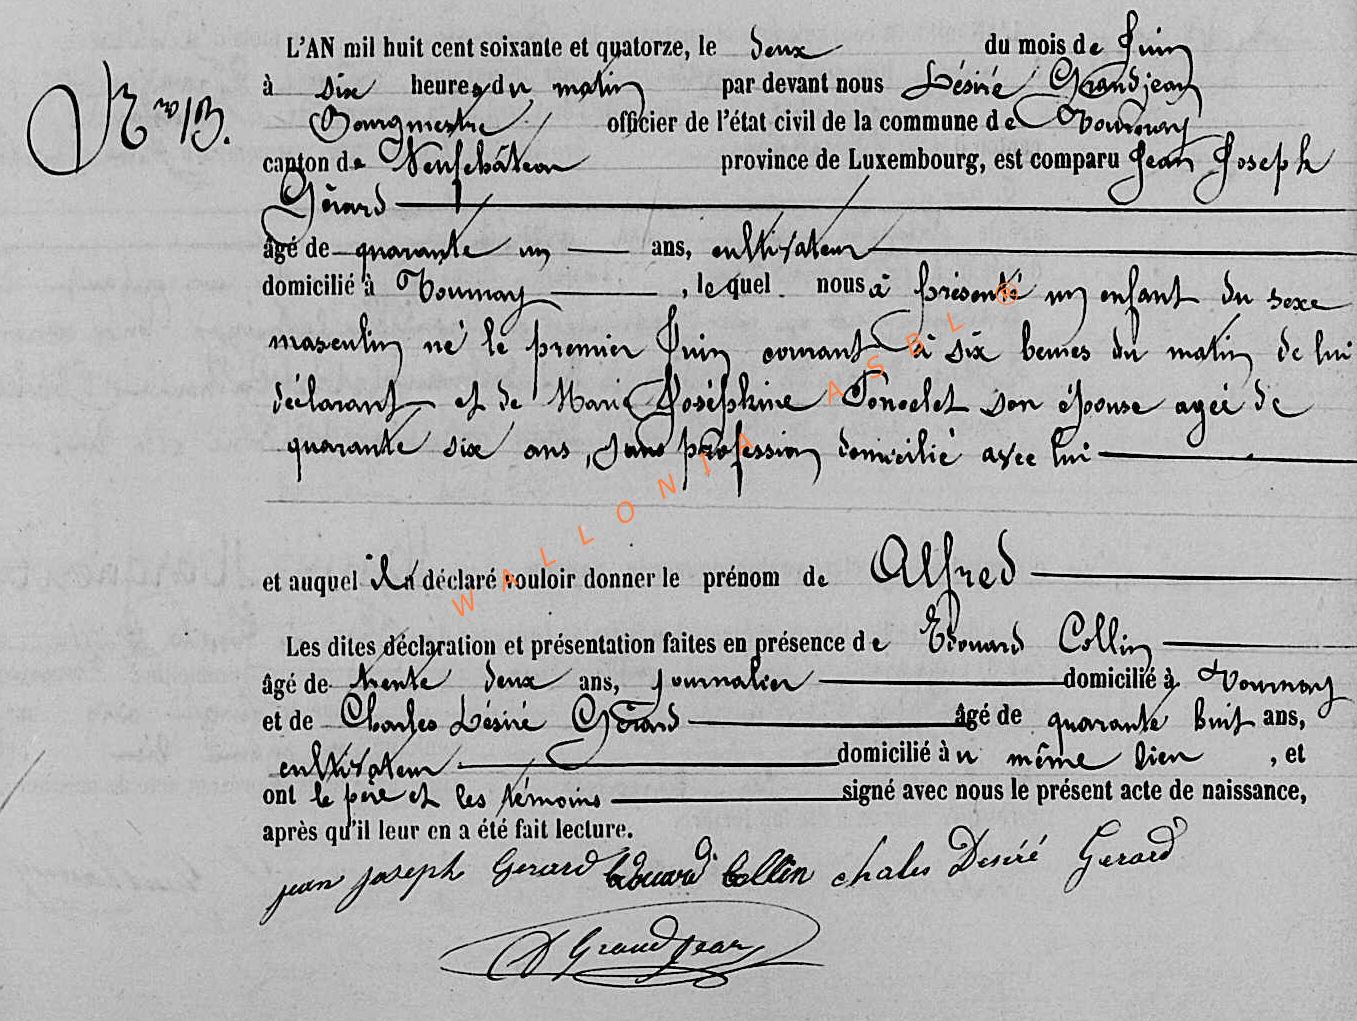 L'AN mil huit cent soixante et quatorze, le deux du mois de Juin
N.ro 13.
à six heures du matin par devant nous Désiré Grandjean
Bourgmestre officier de l'état civil de la commune de Tournay
canton de Neufchâteau province de Luxembourg, est comparu Jean Joseph
Gérard
âgé de quarante un ans, cultivateur
domicilié à Tournay, le quel nous a présenté un enfant du sexe
masculin né le premier Juin courant à six heures du matin de lui
déclarant et de Marie Joséphine Poncelet son épouse agée de
quarante six ans, sans profession domicilié avec lui
et auquel il a déclaré vouloir donner le prénom de Alfred
Les dites déclaration et présentation faites en présence de Edouard Collin
âgé de trente deux ans, journalier domicilié à Tournay
et de Charles Désiré Gérard âgé de quarante huit ans,
cultivateur domicilié au même lieu, et
ont le père et les témoins signé avec nous le présent acte de naissance,
après qu'il leur en a été fait lecture.
jean joseph Gerard Edouard Collin chales Desiré Gerard
D Grandjean
WALLONIA ASBL ®